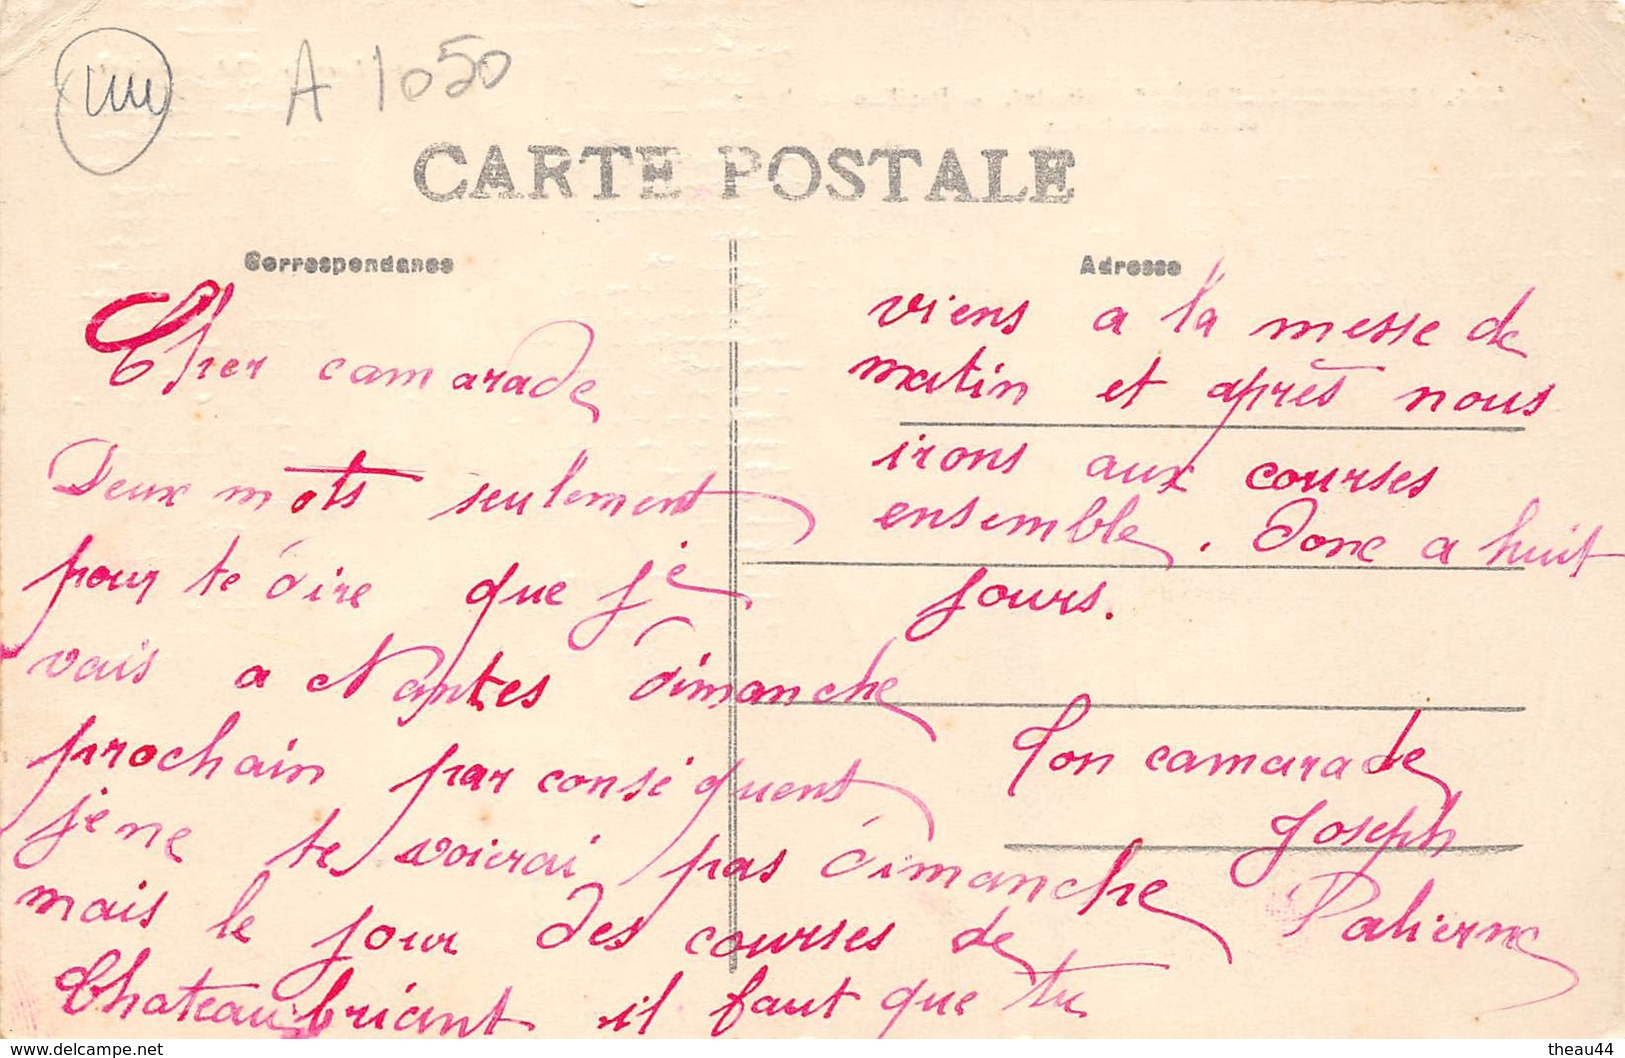 A 1050
CARTE POSTALE
Correspondance
Cher camarade
Deux mots seulement
pour te dire que je
vais a Nantes dimanche
prochain par conséquent
je ne te voierai pas dimanche
mais le jour des courses de
Chateaubriant il faut que tu
Adresse
viens a la messe de
matin et après nous
irons aux courses
ensemble. Donc a huit
jours.
Ton camarade
Joseph
Palierne
www.delcampe.net
theau44